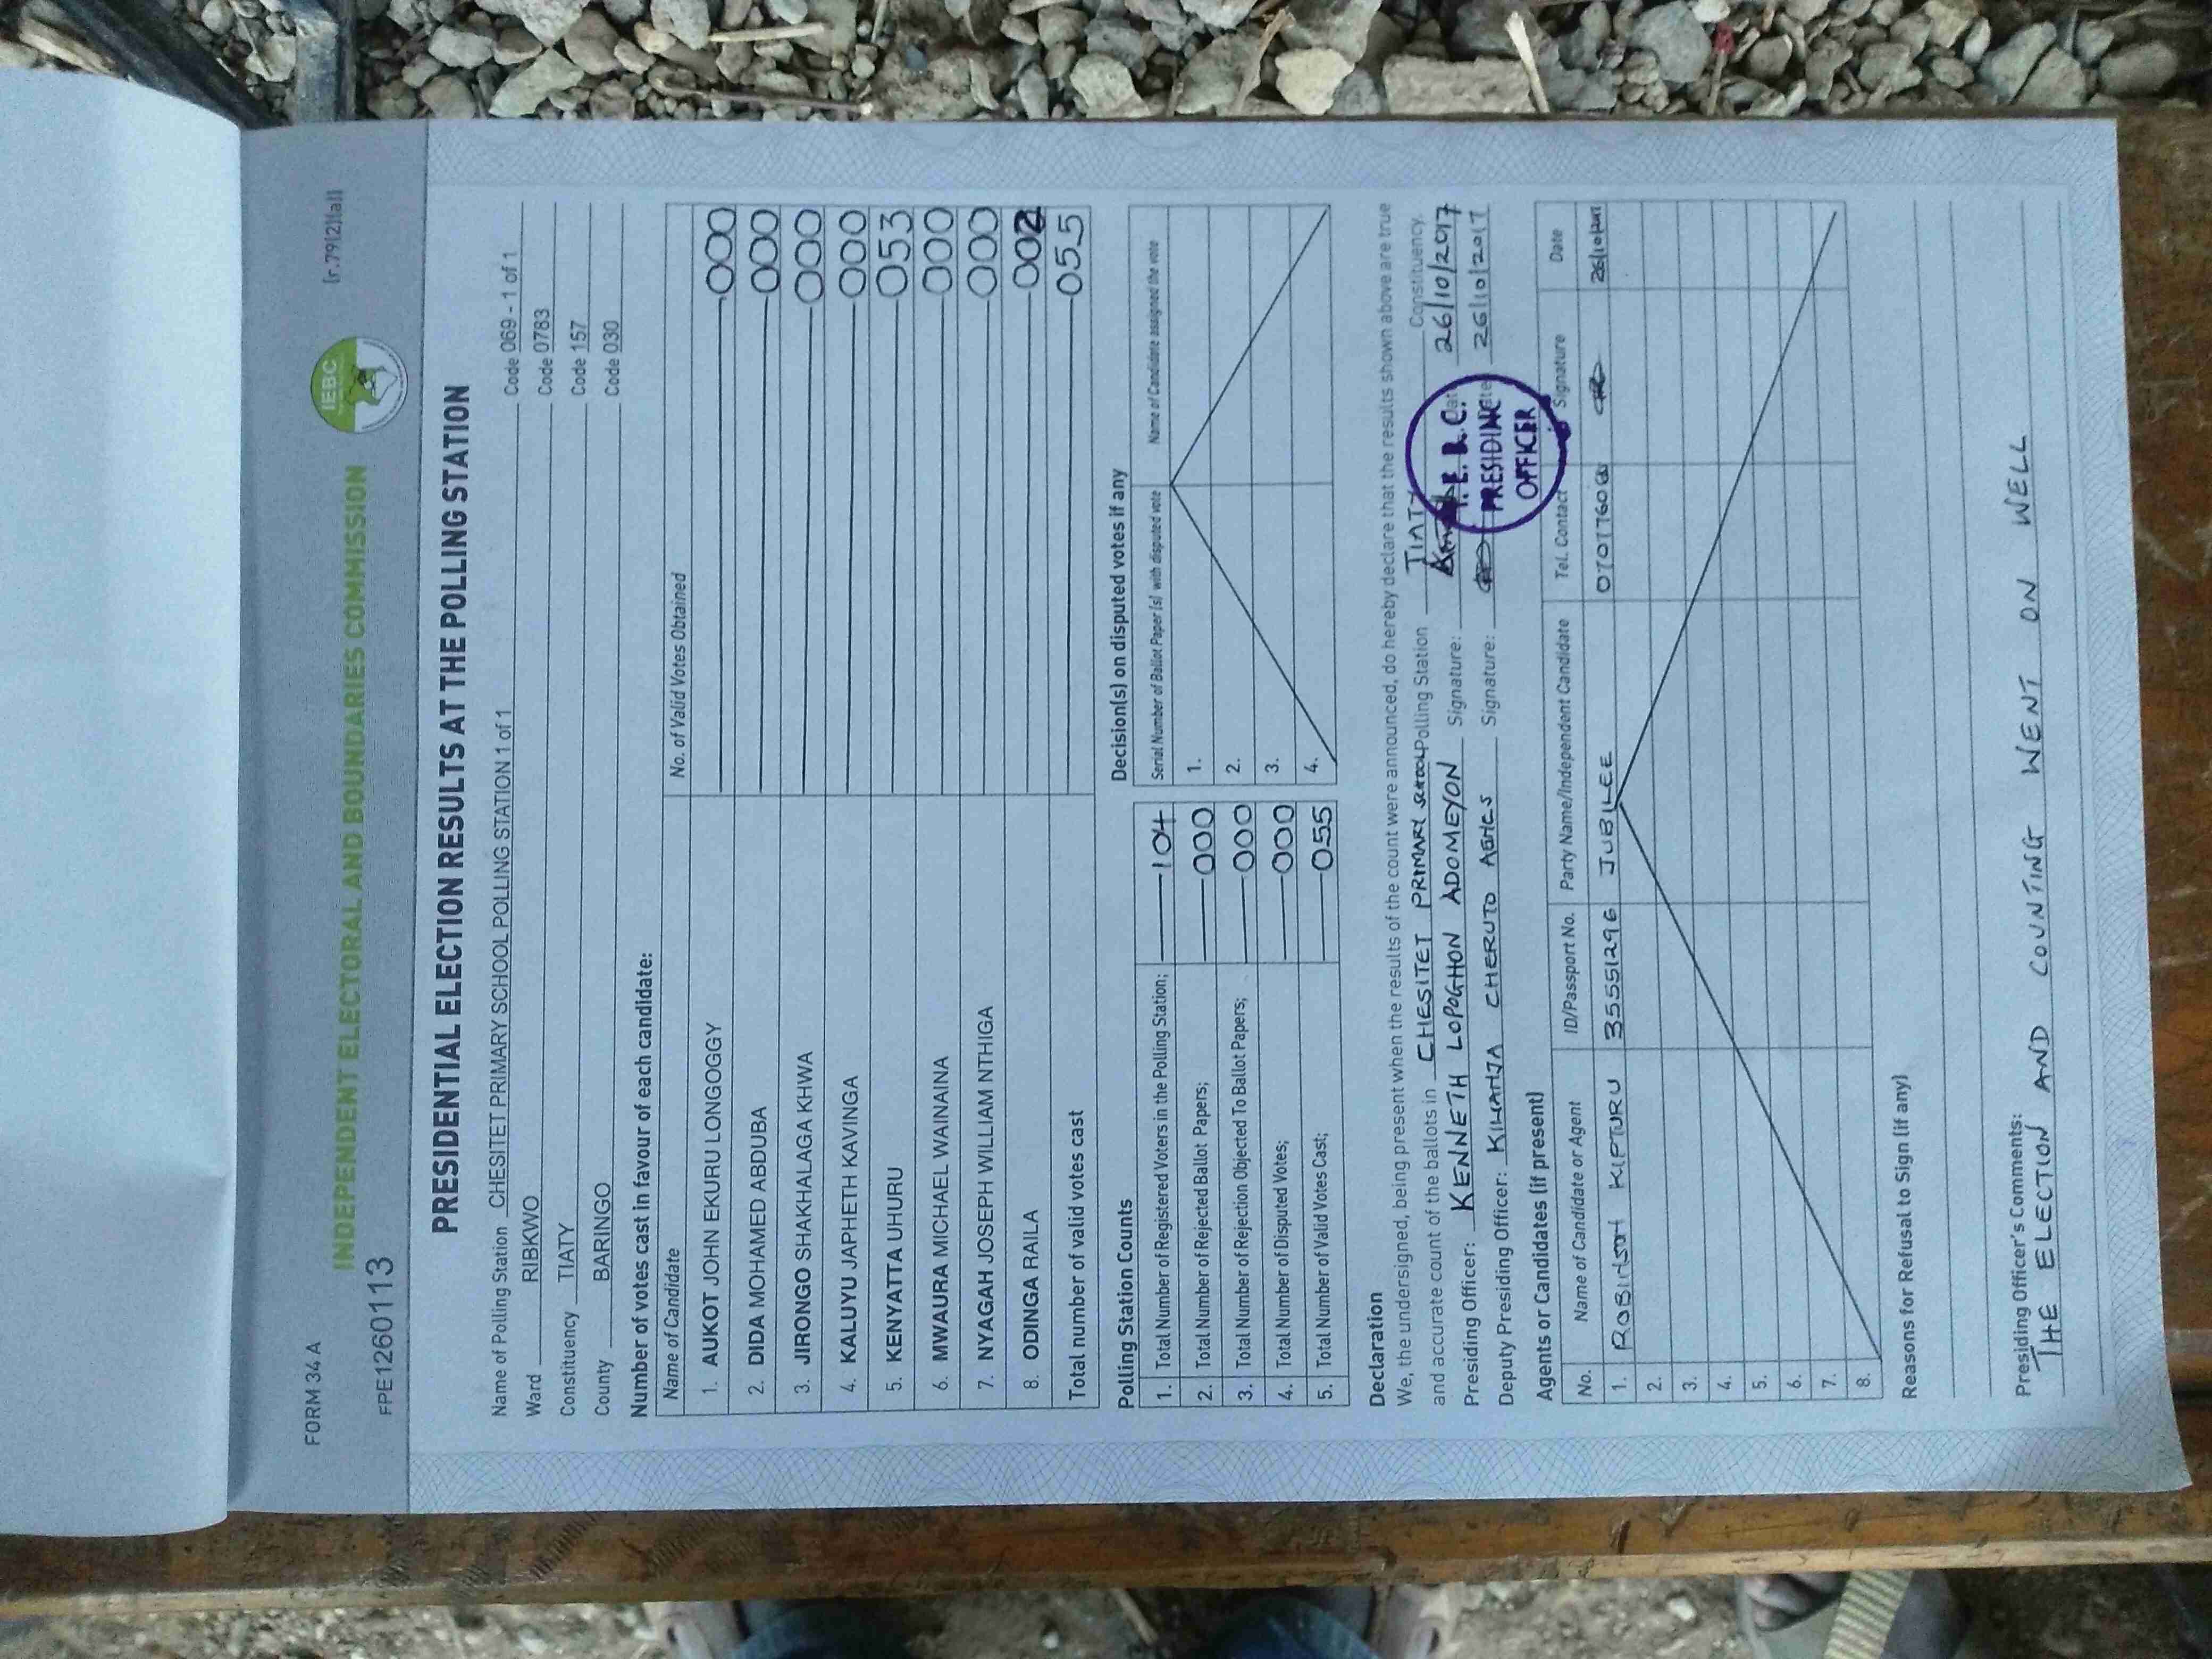 FORM 34 A
[r.79(2)(a)]
INDEPENDENT ELECTORAL AND BOUNDARIES COMMISSION
IEBC
FPE1260113
PRESIDENTIAL ELECTION RESULTS AT THE POLLING STATION
Name of Polling Station CHESITET PRIMARY SCHOOL POLLING STATION 1 of 1 Code 069 - 1 of 1
Ward RIBKWO Code 0783
Constituency TIATY Code 157
County BARINGO Code 030
Number of votes cast in favour of each candidate:
Name of Candidate No. of Valid Votes Obtained
1. AUKOT JOHN EKURU LONGOGGY 000
2. DIDA MOHAMED ABDUBA 000
3. JIRONGO SHAKHALAGA KHWA 000
4. KALUYU JAPHETH KAVINGA 000
5. KENYATTA UHURU 053
6. MWAURA MICHAEL WAINAINA 000
7. NYAGAH JOSEPH WILLIAM NTHIGA 000
8. ODINGA RAILA 002
Total number of valid votes cast 055
Polling Station Counts
1. Total Number of Registered Voters in the Polling Station; 104
2. Total Number of Rejected Ballot Papers; 000
3. Total Number of Rejection Objected To Ballot Papers; 000
4. Total Number of Disputed Votes; 000
5. Total Number of Valid Votes Cast; 055
Decision(s) on disputed votes if any
Serial Number of Ballot Paper (s) with disputed vote Name of Candidate assigned the vote
1.
2.
3.
4.
Declaration
We, the undersigned, being present when the results of the count were announced, do hereby declare that the results shown above are true
and accurate count of the ballots in CHESITET PRIMARY SCHOOL Polling Station TIATY Constituency.
Presiding Officer: KENNETH LOPOGHON ADOMEYON Signature: 26/10/2017
Deputy Presiding Officer: CHERUTO AGNES Signature: 26/10/2017
I.E.B.C.
PRESIDING
OFFICER
Agents or Candidates (if present)
No. Name of Candidate or Agent ID/Passport No. Party Name/Independent Candidate Tel. Contact Signature Date
1. ROBINSON KIPTURU 35551296 JUBILEE 26/10/2017
2.
3.
4.
5.
6.
7.
8.
Reasons for Refusal to Sign (if any)
Presiding Officer's Comments:
THE ELECTION AND COUNTING WENT ON WELL